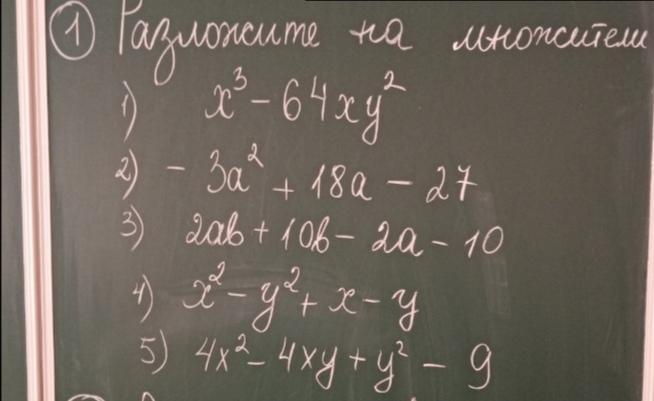 ① Разложите на множители
1) x³ - 64xy²
2) - 3a² + 18a - 27
3) 2ab + 10b - 2a - 10
4) x² - y² + x - y
5) 4x² - 4xy + y² - 9